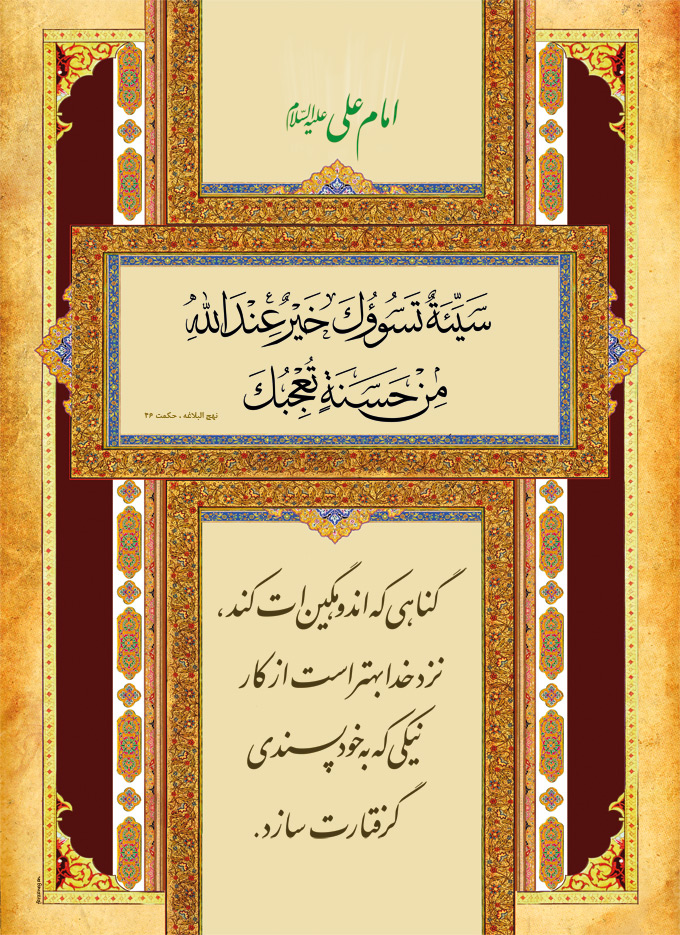 امام علی علیه‌السلام
سَيِّئَةٌ تَسُوؤُكَ خَيْرٌ عِنْدَ اللهِ
مِنْ حَسَنَةٍ تُعْجِبُكَ
نهج البلاغه ، حکمت ۴۶
گناهی که اندوهگین‌ات کند،
نزد خدا بهتر است از کار
نیکی که به خودپسندی
گرفتارت سازد.